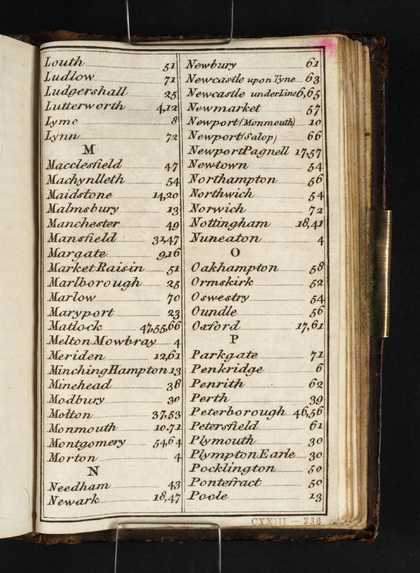 Louth 51
Ludlow 71
Ludgershall 25
Lutterworth 4,12
Lyme 8
Lynn 72
M
Macclesfield 47
Machynlleth 54
Maidstone 14,20
Malmsbury 13
Manchester 49
Mansfield 32,47
Margate 9,16
Market Raisin 51
Marlborough 25
Marlow 70
Maryport 23
Matlock 47,55,66
Melton Mowbray 4
Meriden 12,61
Minching Hampton 13
Minehead 38
Modbury 30
Molton 37,53
Monmouth 10,71
Montgomery 54,64
Morton 4
N
Needham 43
Newark 18,47
Newbury 61
Newcastle upon Tyne 63
Newcastle under Line 6,65
Newmarket 57
Newport (Monmouth) 10
Newport (Salop) 66
Newport Pagnell 17,57
Newtown 54
Northampton 56
Northwich 54
Norwich 72
Nottingham 18,41
Nuneaton 4
O
Oakhampton 58
Ormskirk 52
Oswestry 54
Oundle 56
Oxford 17,61
P
Parkgate 71
Penkridge 6
Penrith 62
Perth 39
Peterborough 46,56
Petersfield 61
Plymouth 30
Plympton Earle 30
Pocklington 50
Pontefract 50
Poole 13